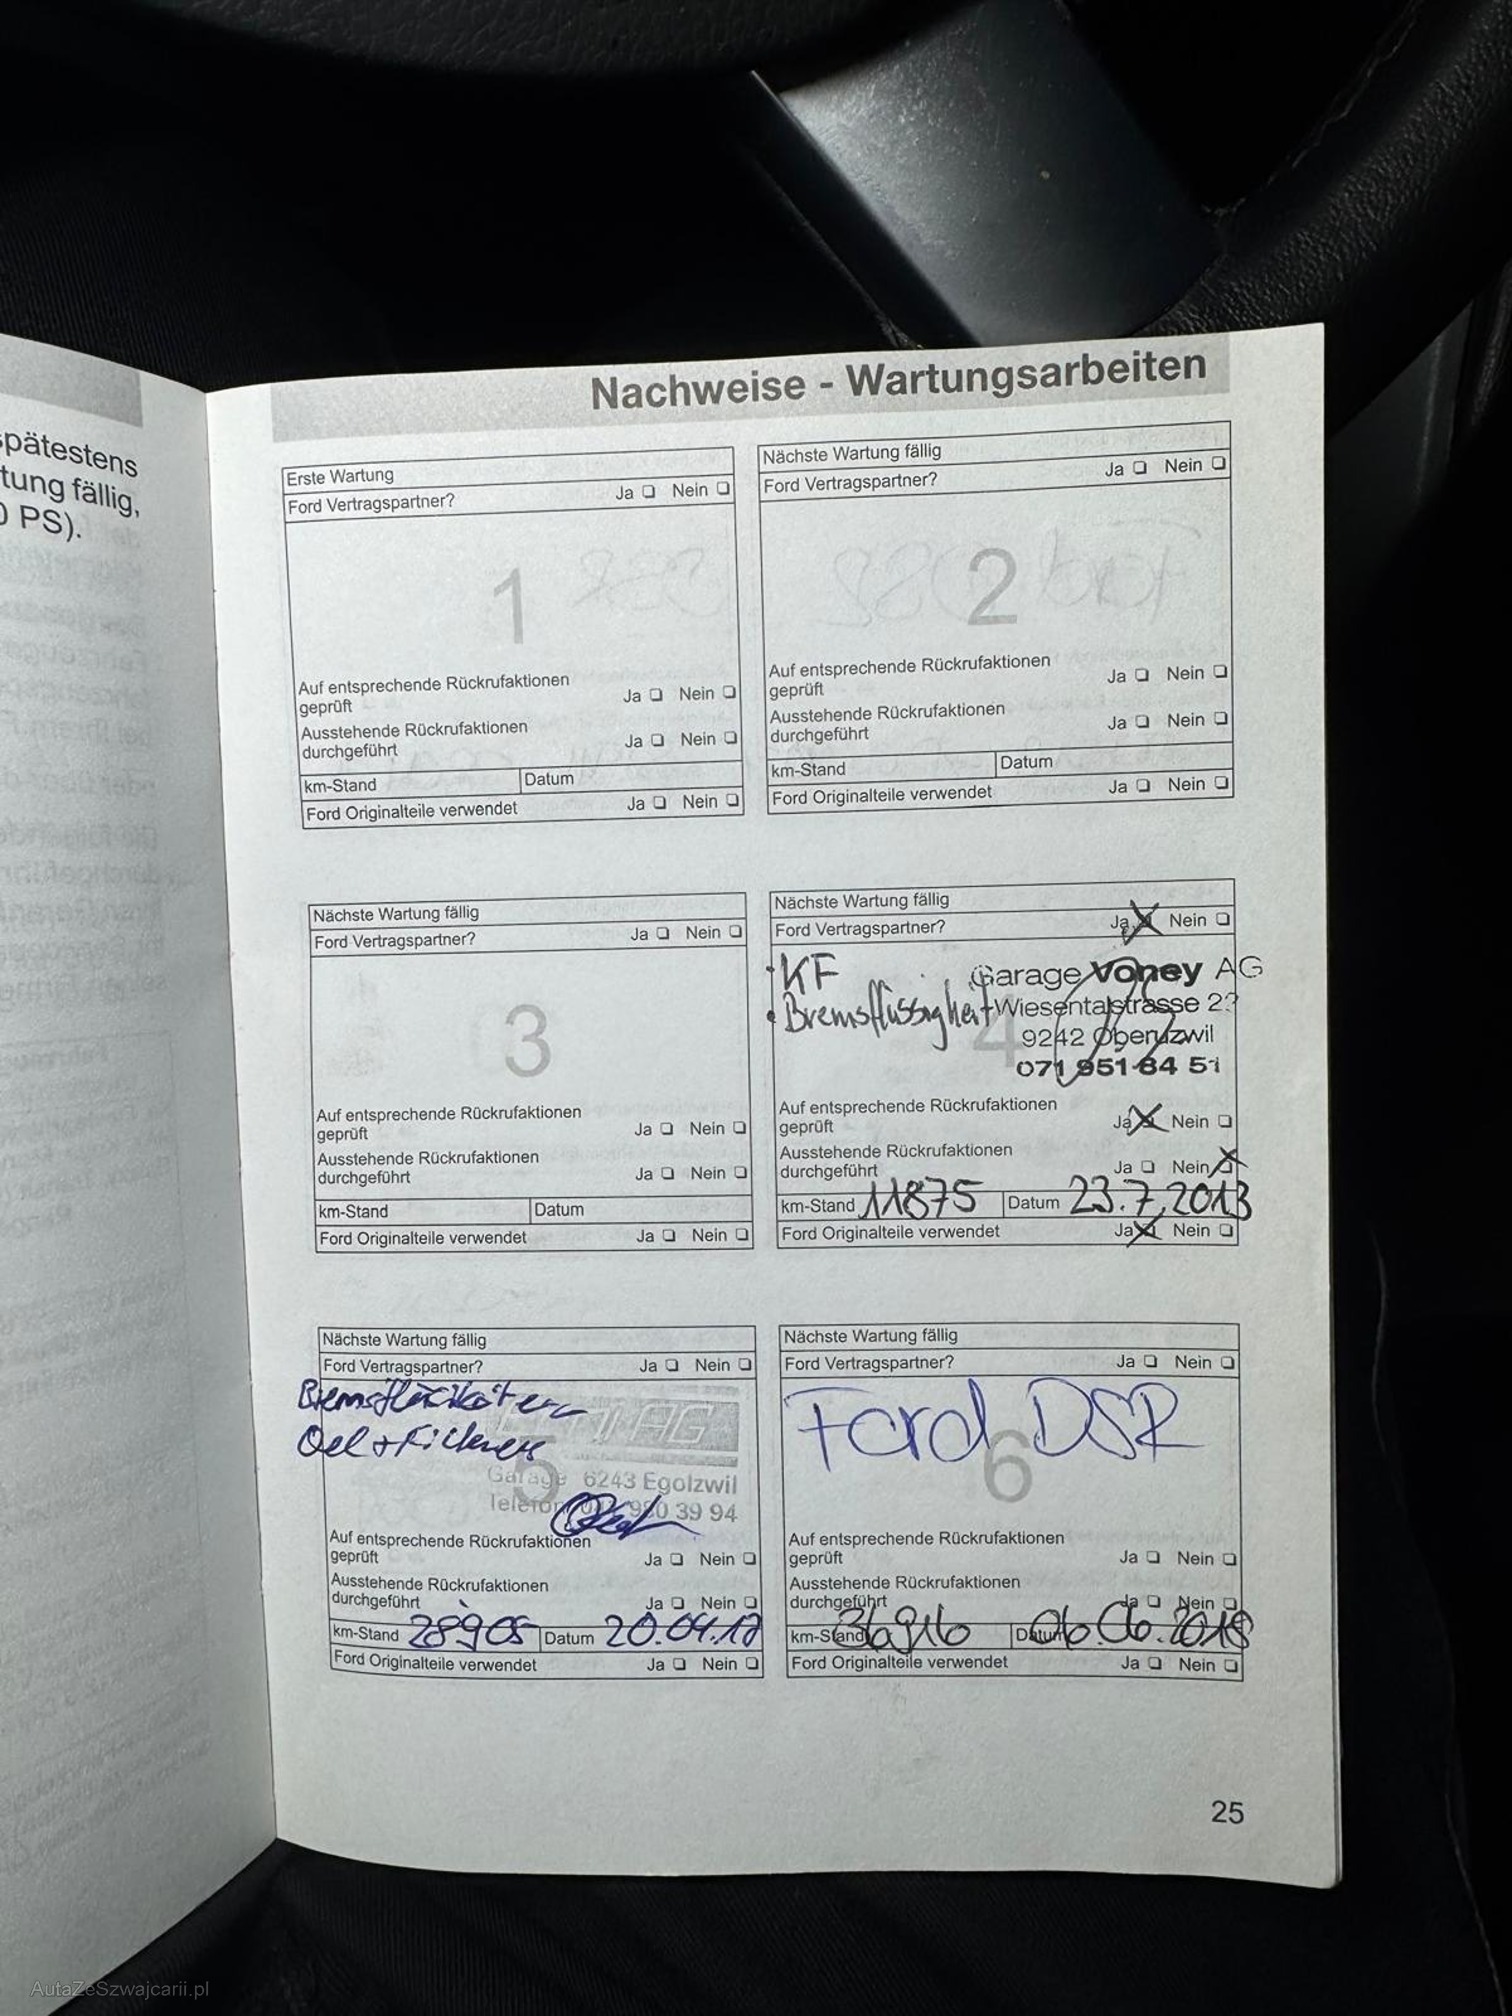 pätestens
tung fällig,
PS).
Nachweise - Wartungsarbeiten
Erste Wartung
Ford Vertragspartner? Ja Nein
1
Auf entsprechende Rückrufaktionen
geprüft Ja Nein
Ausstehende Rückrufaktionen
durchgeführt Ja Nein
km-Stand Datum
Ford Originalteile verwendet Ja Nein
Nächste Wartung fällig
Ford Vertragspartner? Ja Nein
2
Auf entsprechende Rückrufaktionen
geprüft Ja Nein
Ausstehende Rückrufaktionen
durchgeführt Ja Nein
km-Stand Datum
Ford Originalteile verwendet Ja Nein
Nächste Wartung fällig
Ford Vertragspartner? Ja Nein
3
Auf entsprechende Rückrufaktionen
geprüft Ja Nein
Ausstehende Rückrufaktionen
durchgeführt Ja Nein
km-Stand Datum
Ford Originalteile verwendet Ja Nein
Nächste Wartung fällig
Ford Vertragspartner? Ja Nein
KF Garage Voney AG
Bremsflüssigkeit Wiesentalstrasse 23
4
9242 Oberuzwil
071 951 84 51
Auf entsprechende Rückrufaktionen
geprüft Ja Nein
Ausstehende Rückrufaktionen
durchgeführt Ja Nein
km-Stand 11875 Datum 23.7.2013
Ford Originalteile verwendet Ja Nein
Nächste Wartung fällig
Ford Vertragspartner? Ja Nein
AG
Oel +
5
Garage 6243 Egolzwil
Telefon 980 39 94
Auf entsprechende Rückrufaktionen
geprüft Ja Nein
Ausstehende Rückrufaktionen
durchgeführt Ja Nein
km-Stand 28905 Datum
Ford Originalteile verwendet Ja Nein
Nächste Wartung fällig
Ford Vertragspartner? Ja Nein
Ford DSR
6
Auf entsprechende Rückrufaktionen
geprüft Ja Nein
Ausstehende Rückrufaktionen
durchgeführt Ja Nein
km-Stand 36916 Datum 06.06.2018
Ford Originalteile verwendet Ja Nein
25
AutaZeSzwajcarii.pl